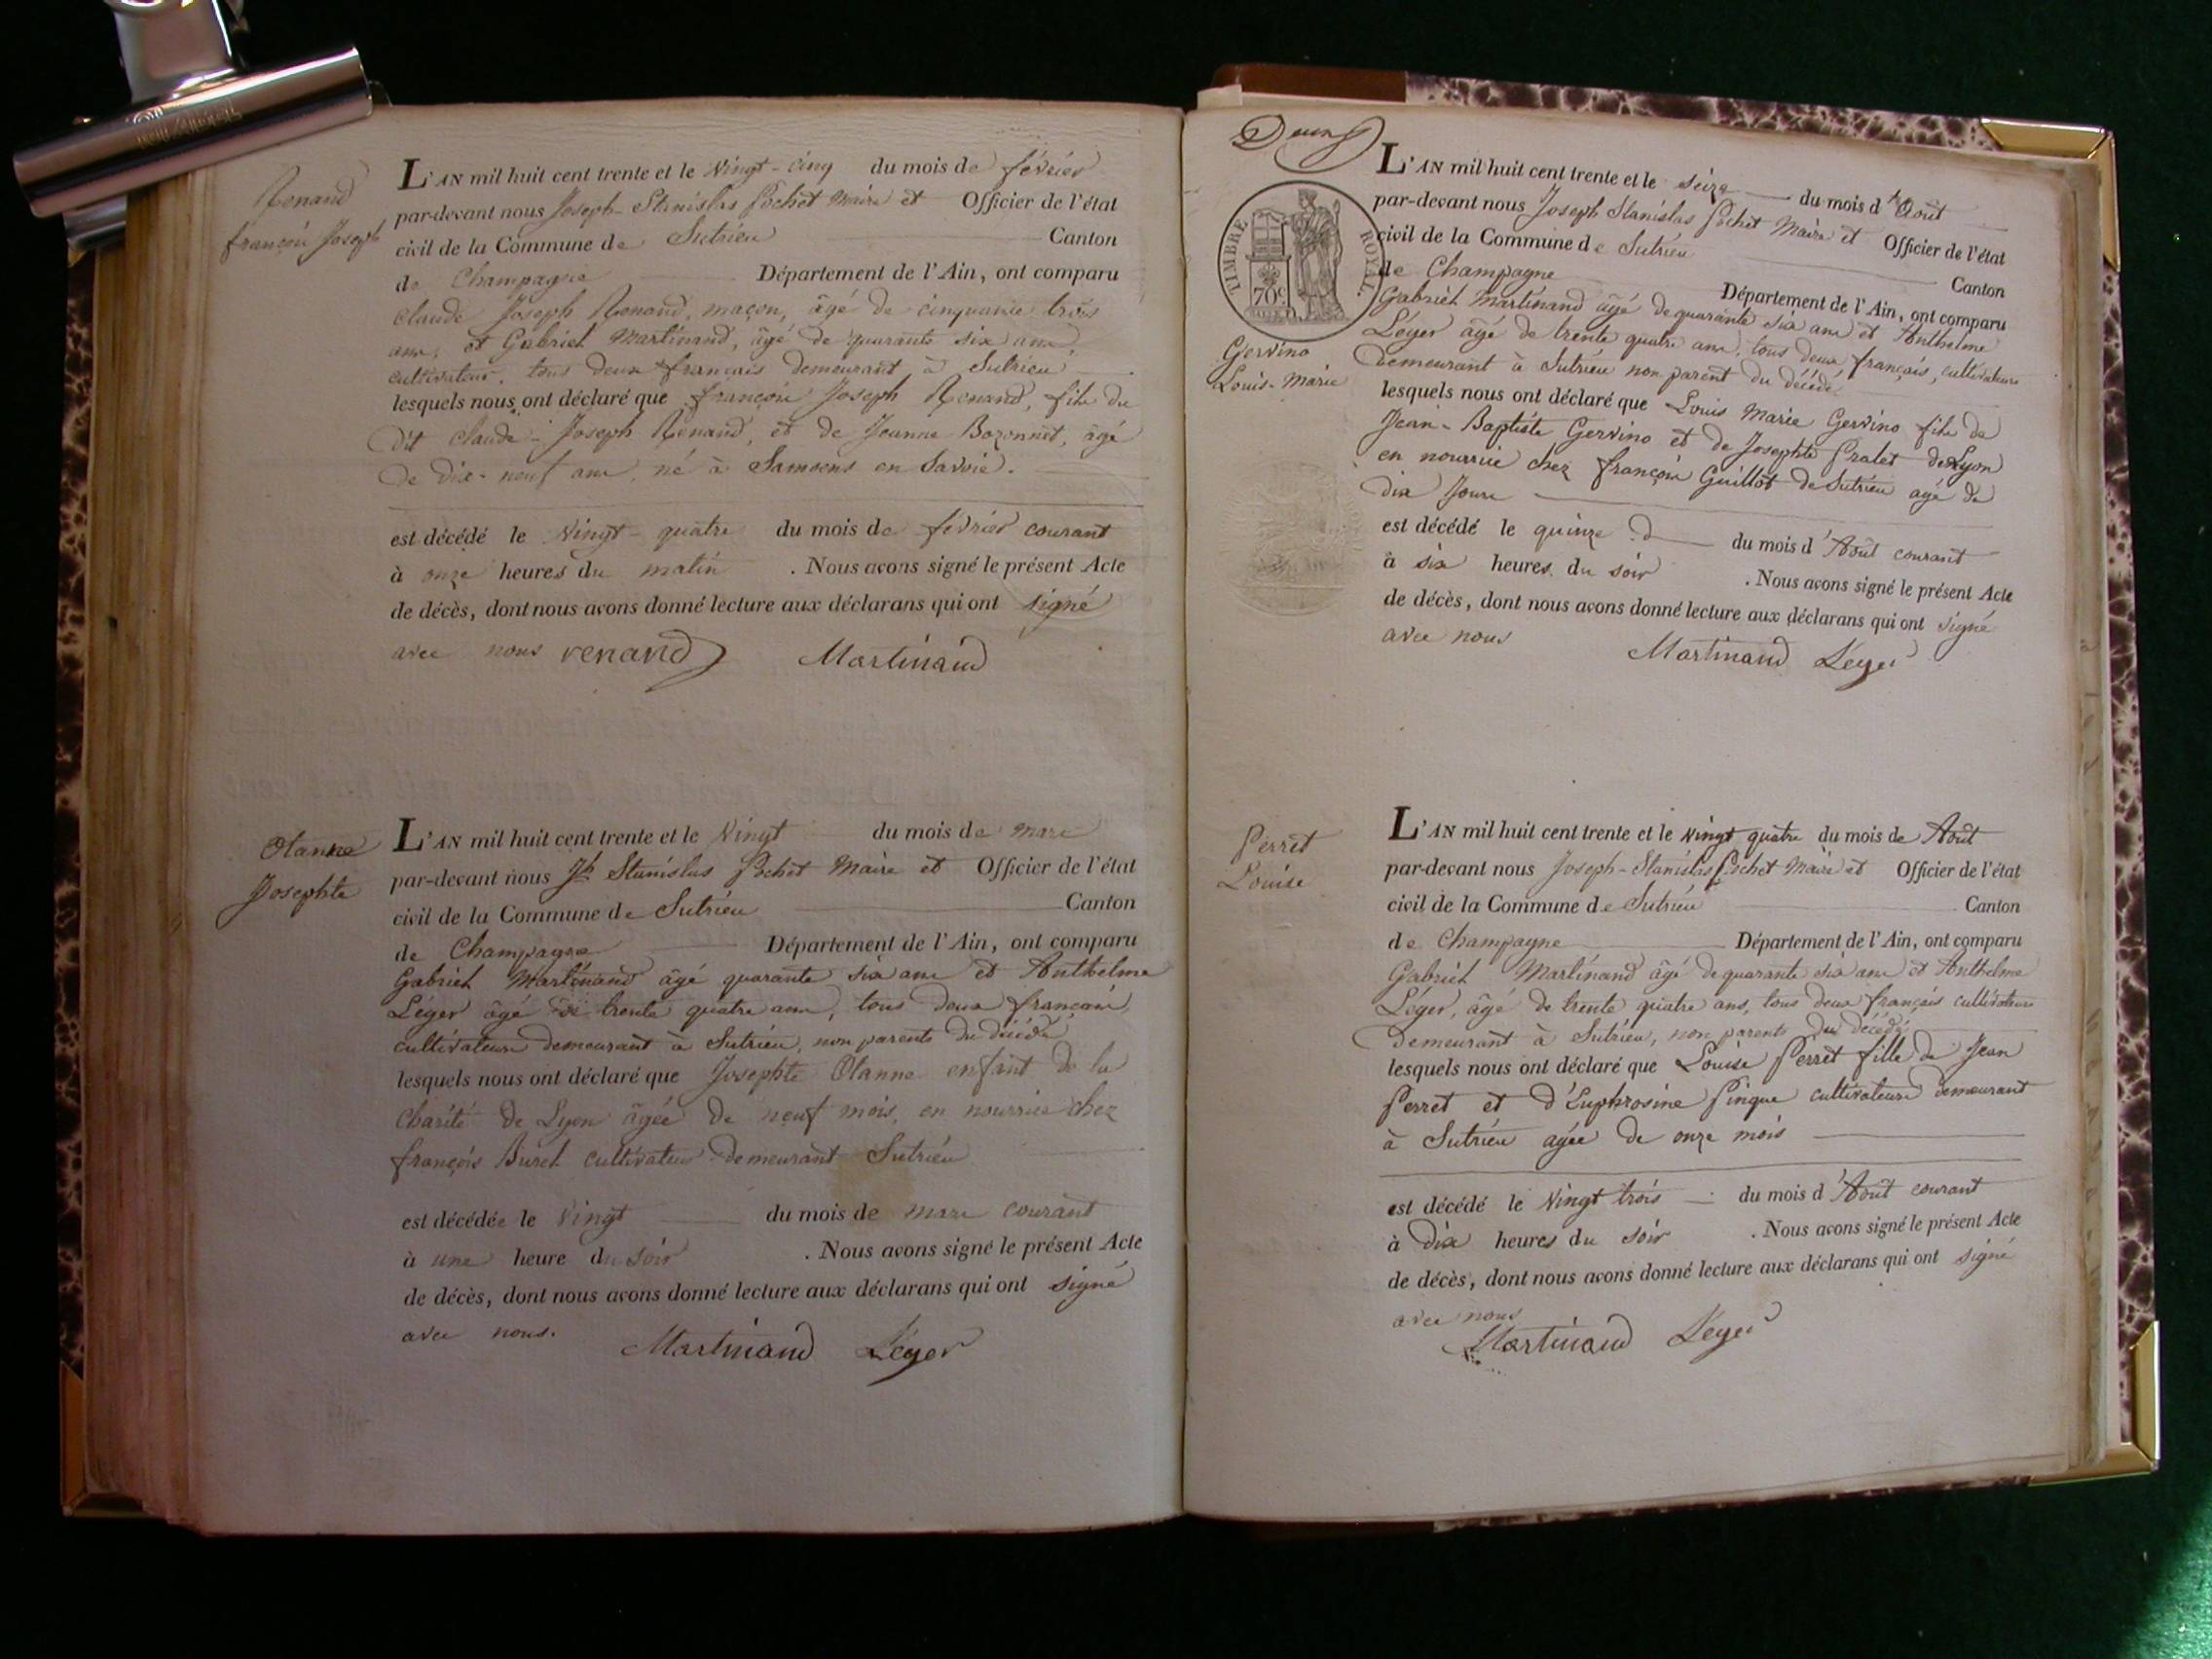 Renand
françois Joseph
L'AN mil huit cent trente et le vingt-cinq du mois de février
par-devant nous Joseph-Stanislas Pochet Maire et Officier de l'état
civil de la Commune de Sutrieu Canton
de Champagne Département de l'Ain, ont comparu
claude Joseph Renand, maçon, âgé de cinquante trois
ans, et Gabriel Martinand, âgé de quarante six ans,
cultivateur, tous deux français demeurant à Sutrieu
lesquels nous ont déclaré que françois Joseph Renand, fils du
dit claude-Joseph Renand, et de Jeanne Bozonnet, âgé
de dix-neuf ans, né à Samoens en Savoie.
est décédé le vingt-quatre du mois de février courant
à onze heures du matin . Nous avons signé le présent Acte
de décès, dont nous avons donné lecture aux déclarans qui ont signé
avec nous renand Martinand
Olanne
Josephte
L'AN mil huit cent trente et le vingt du mois de mars
par-devant nous Jh Stanislas Pochet Maire et Officier de l'état
civil de la Commune de Sutrieu Canton
de Champagne Département de l'Ain, ont comparu
Gabriel Martinand âgé quarante six ans et Anthelme
Léger âgé de trente quatre ans, tous deux français,
cultivateurs demeurant à Sutrieu, non parents du décédé
lesquels nous ont déclaré que Josephte Olanne enfant de la
charité de Lyon âgée de neuf mois, en nourrice chez
françois Buret cultivateur demeurant Sutrieu
est décédée le vingt du mois de mars courant
à une heure du soir . Nous avons signé le présent Acte
de décès, dont nous avons donné lecture aux déclarans qui ont signé
avec nous. Martinand Léger
Deux
TIMBRE ROYAL.
70c
Gervino
Louis-Marie
L'AN mil huit cent trente et le seize du mois d'Août
par-devant nous Joseph Stanislas Pochet Maire et Officier de l'état
civil de la Commune de Sutrieu Canton
de Champagne Département de l'Ain, ont comparu
Gabriel Martinand âgé de quarante six ans et Anthelme
Léger âgé de trente quatre ans, tous deux français, cultivateurs
demeurant à Sutrieu non parent du décédé
lesquels nous ont déclaré que Louis Marie Gervino fils de
Jean-Baptiste Gervino et de Josephte Pralet de Lyon
en nourrice chez françois Guillot de Sutrieu agé de
dix jours
est décédé le quinze du mois d'Août courant
à six heures du soir . Nous avons signé le présent Acte
de décès, dont nous avons donné lecture aux déclarans qui ont signé
avec nous Martinand Léger
Perret
Louise
L'AN mil huit cent trente et le vingt quatre du mois de Août
par-devant nous Joseph-Stanislas Pochet Maire et Officier de l'état
civil de la Commune de Sutrieu Canton
de Champagne Département de l'Ain, ont comparu
Gabriel Martinand âgé de quarante six ans et Anthelme
Léger, âgé de trente quatre ans, tous deux français cultivateurs
demeurant à Sutrieu, non parents du décédé
lesquels nous ont déclaré que Louise Perret fille de Jean
Perret et d'Euphrosine Pingue cultivateurs demeurant
à Sutrieu agée de onze mois
est décédé le vingt trois du mois d'Août courant
à dix heures du soir . Nous avons signé le présent Acte
de décès, dont nous avons donné lecture aux déclarans qui ont signé
avec nous
Martinand Léger